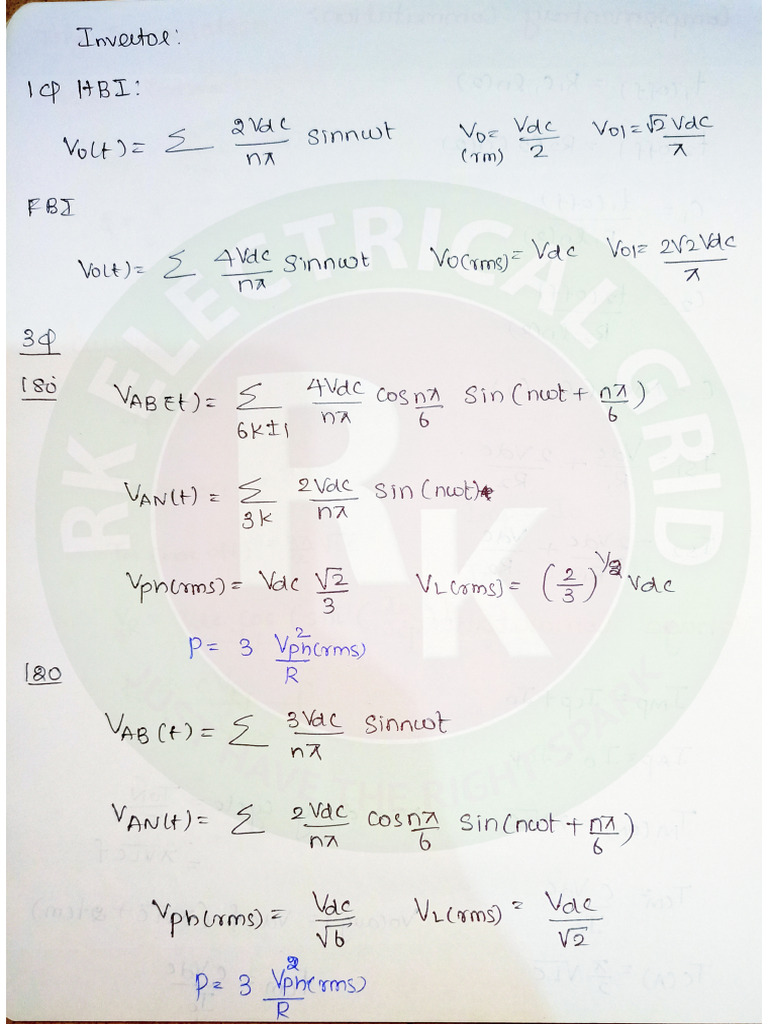 Invertor:
1φ HBI:
Vo(t) = Σ 2Vdc/nπ sinnωt   Vo(rm) = Vdc/2   Vo1 = √2 Vdc/π
FBI
Vo(t) = Σ 4Vdc/nπ sinnωt   Vo(rms) = Vdc   Vo1 = 2√2 Vdc/π
3φ
180°
VAB(t) = Σ 6k±1 4Vdc/nπ cos nπ/6 sin(nωt + nπ/6)
VAN(t) = Σ 3k 2Vdc/nπ sin(nωt)
Vph(rms) = Vdc √2/3   VL(rms) = (2/3)^1/2 Vdc
P = 3 Vph²(rms)/R
120
VAB(t) = Σ 3Vdc/nπ sinnωt
VAN(t) = Σ 2Vdc/nπ cos nπ/6 sin(nωt + nπ/6)
Vph(rms) = Vdc/√6   VL(rms) = Vdc/√2
P = 3 Vph²(rms)/R
RK ELECTRICAL GRID
RK
HAVE THE RIGHT SPARK